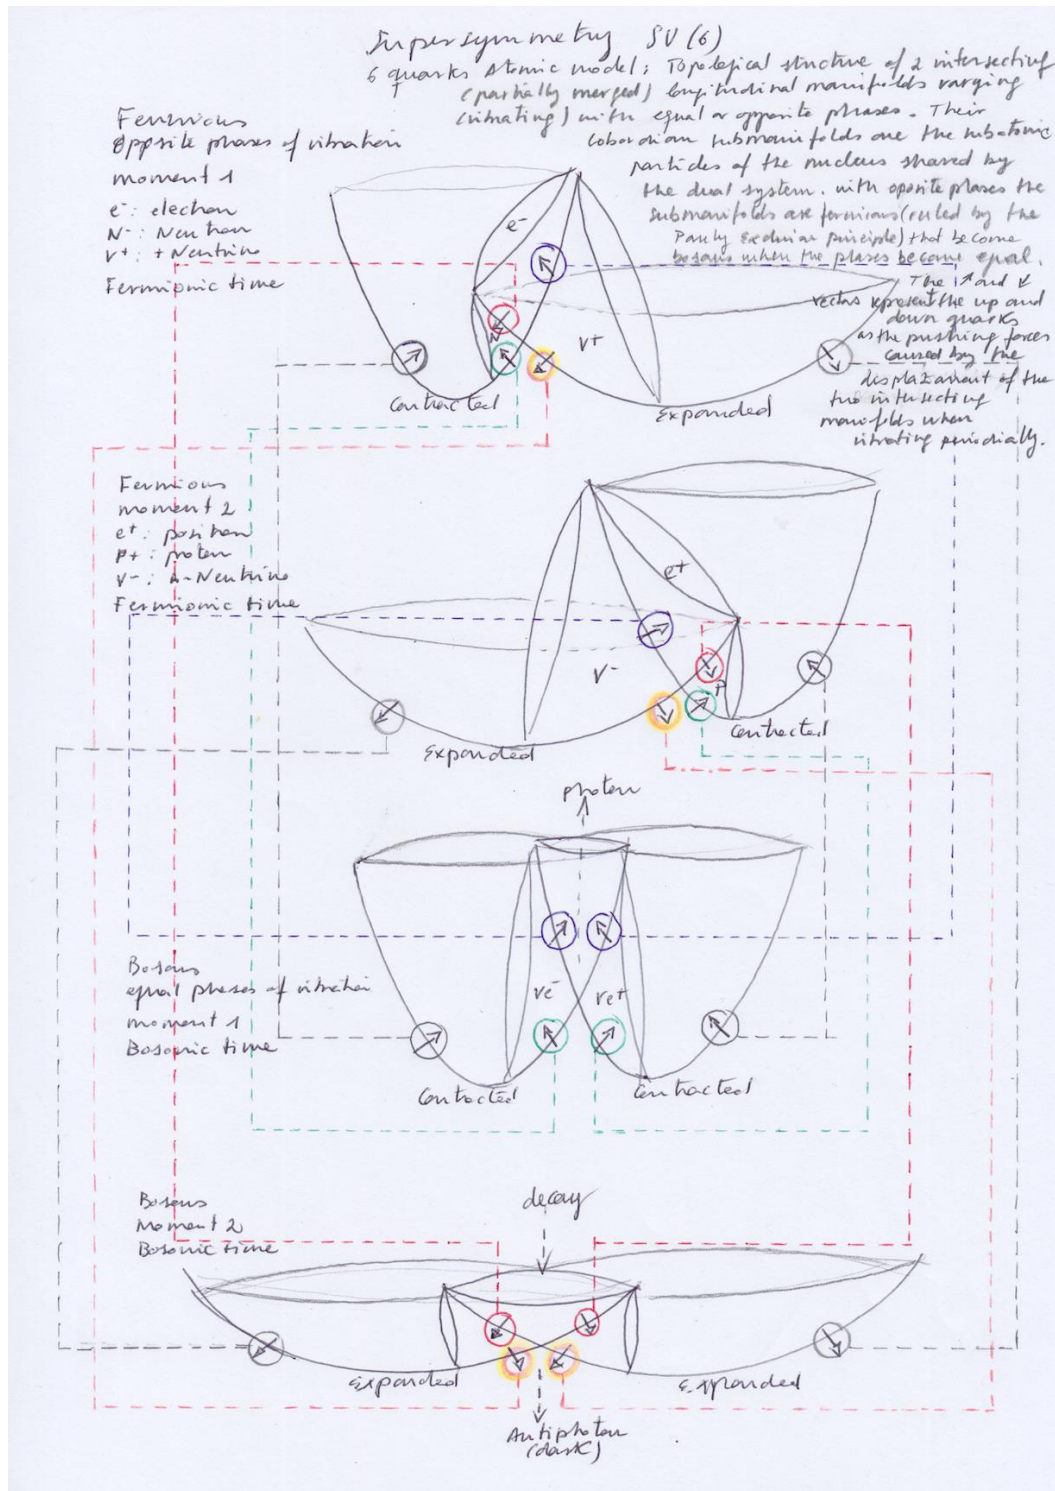 Supersymmetry SU(6)
6 quarks Atomic model; Topological structure of 2 intersecting
(partially merged) longitudinal manifolds varging
(vibrating) with equal or opposite phases. Their
cobordian submanifolds are the subatomic
particles of the nucleus shared by
the dual system. with oposite phases the
submanifolds are fermions (ruled by the
Pauly Exclusion principle) that become
bosons when the phases become equal.
The ↗ and ↙
vectors represent the up and
down quarks
as the pushing forces
caused by the
displazament of the
two intersecting
manifolds when
vibrating periodically.
Fermions
Opposite phases of vibration
moment 1
e-: electron
N-: Neutron
V+: + Neutrino
Fermionic time
e-
N
V+
Contracted
Expanded
Fermions
moment 2
e+: positron
P+: proton
V-: - Neutrino
Fermionic time
e+
V-
P
Expanded
Contracted
photon
Bosons
equal phases of vibration
moment 1
Bosonic time
Ve-
Ve+
Contracted
Contracted
Bosons
Moment 2
Bosonic time
decay
Expanded
Expanded
Antiphoton
(dark)